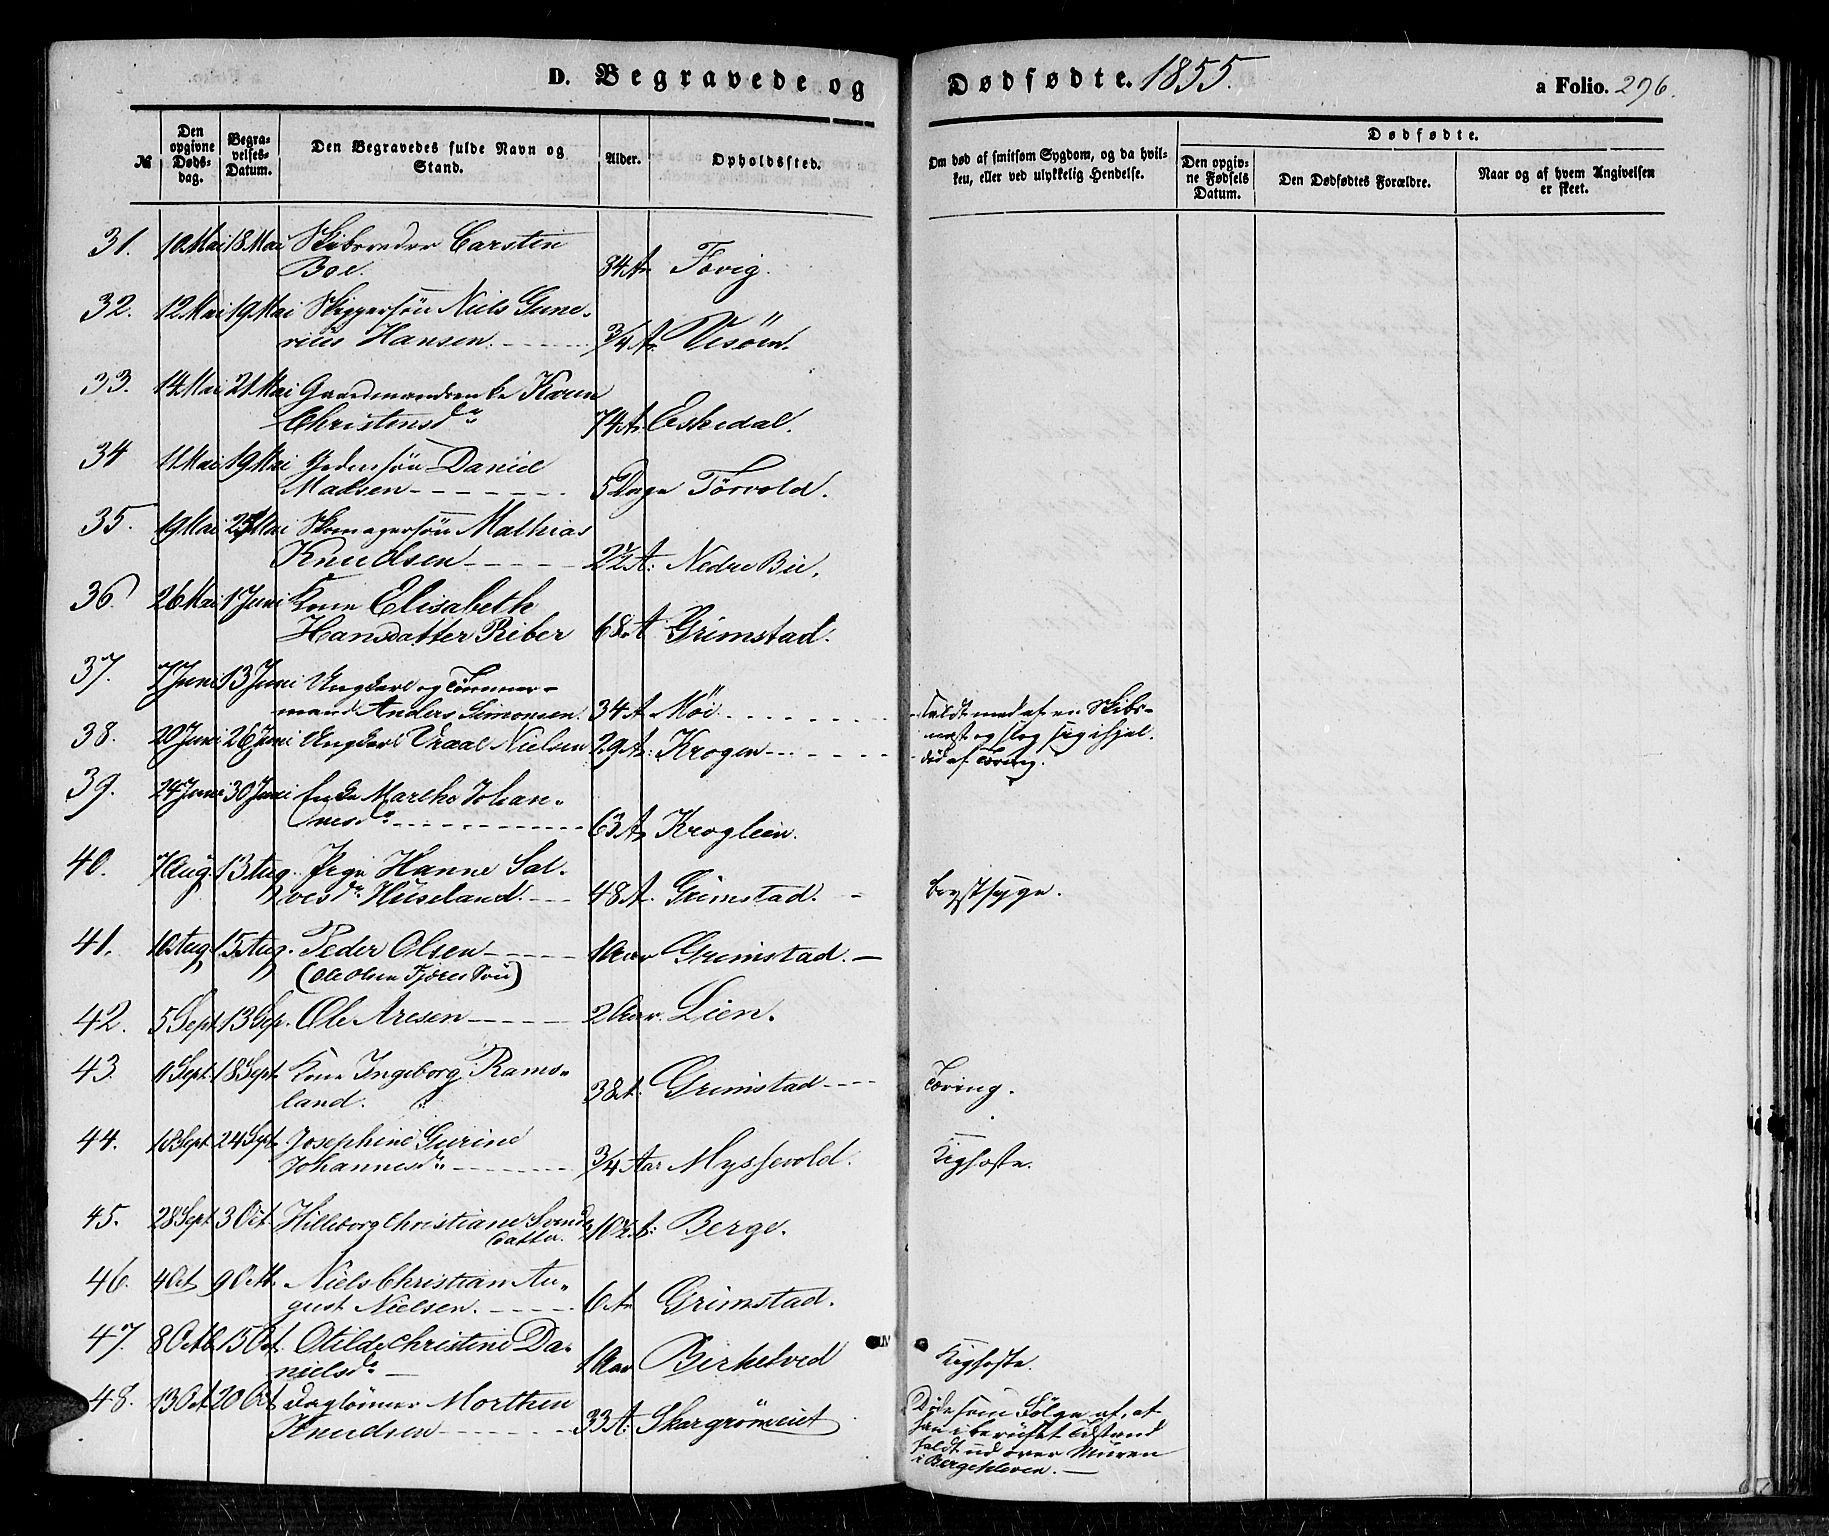 D. Begravede og Dødfødte. 1855. a Folio. 296.
№ Den opgivne Døds-dag. Begra-velses-Datum. Den Begravedes fulde Navn og Stand. Alder. Opholdssted. Om død af smitsom Sygdom, og da hvil-ken, eller ved ulykkelig Hendelse. Dødfødte. Den opgiv-ne Fødsels Datum. Den Dødfødtes Forældre. Naar og af hvem Angivelsen er skeet.
31. 10 Mai 18 Mai Skibsreder Carsten
Boe. 84 A. Fevig.
32. 12 Mai 19 Mai Skippersøn Niels Gune-
rius Hansen. 3/4 A. Vesøen.
33. 14 Mai 21 Mai Gaardmandsenke Karen
Christensd. 74 A. Eskedal.
34 11 Mai 19 Mai Daniel
Madsen 5 Dage Tørvold.
35. 19 Mai 25 Mai Skomagersøn Mathias
Knudsen 2½ A: Nedre Bie.
36. 26 Mai 1 Juni Kone Elisabeth
Hansdatter Riber 68 A Grimstad.
37. 7 Juni 13 Juni Ungkarl og Tømmer-
mand Anders Simonsen. 34 A Møi. Faldt ned af en Skibs-
mast og slog sig ihjel.
38. 20 Juni 26 Juni Ungkarl Vraal Nielsen 29 A: Krogen død af Tæring.
39. 24 Juni 30 Juni Enke Marthe Johan-
nesd. 63 A. Kroglien.
40. 7 Aug. 13 Aug. Pige Hanne Sal-
vesd. Huseland. 48 A. Grimstad. Brystsyge.
41. 10 Aug. 15 Aug. Peder Olsen 1 Aar Grimstad.
(Ole Olsen Fjære Søn)
42. 5 Sept. 13 Sep. Ole Aresen 2 Aar. Lien.
43. Sept. 18 Sept. Kone Ingeborg Rams-
land. 38 A. Grimstad Tæring.
44. 18 Sept. 24 Sept. Josephine Gurine
Johannesd. 3/4 Aar Myssevold. Kighoste.
45. 28 Sept. 3 Oct. Hilleborg Christiane Svends
datter. 10½ A: Berge.
46. 4 Oct 9 Octb. Niels Christian Au-
gust Nielsen. 6 A. Grimstad.
47. 8 Octb 15 Oct. Otilde Christine Da-
nielsd. 1 Aar Birketved Kighoste.
48. 13 Oct 20 Oct Daglønner Morthen
Knudsen 33 A: Skargrømeiet Døde som Følge af, at
han i beruset Tilstand
faldt ud over Muren
i Bergekleven.